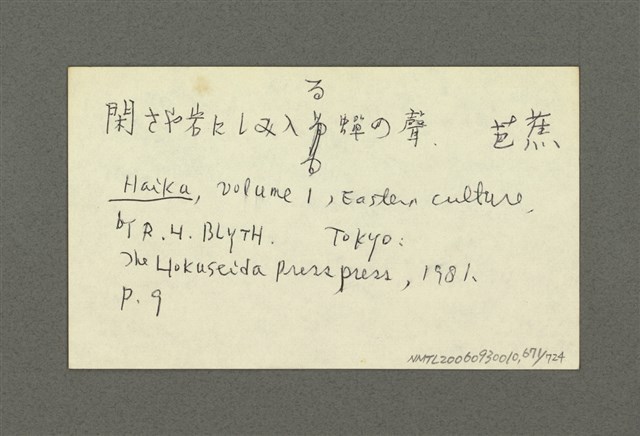 閑さや岩にしみ入る蟬の聲. 芭蕉
Haiku, Volume 1, Eastern culture,
by R. H. BLYTH. Tokyo:
The Hokuseida Press press, 1981.
P. 9
NMTL20060930010,671/724